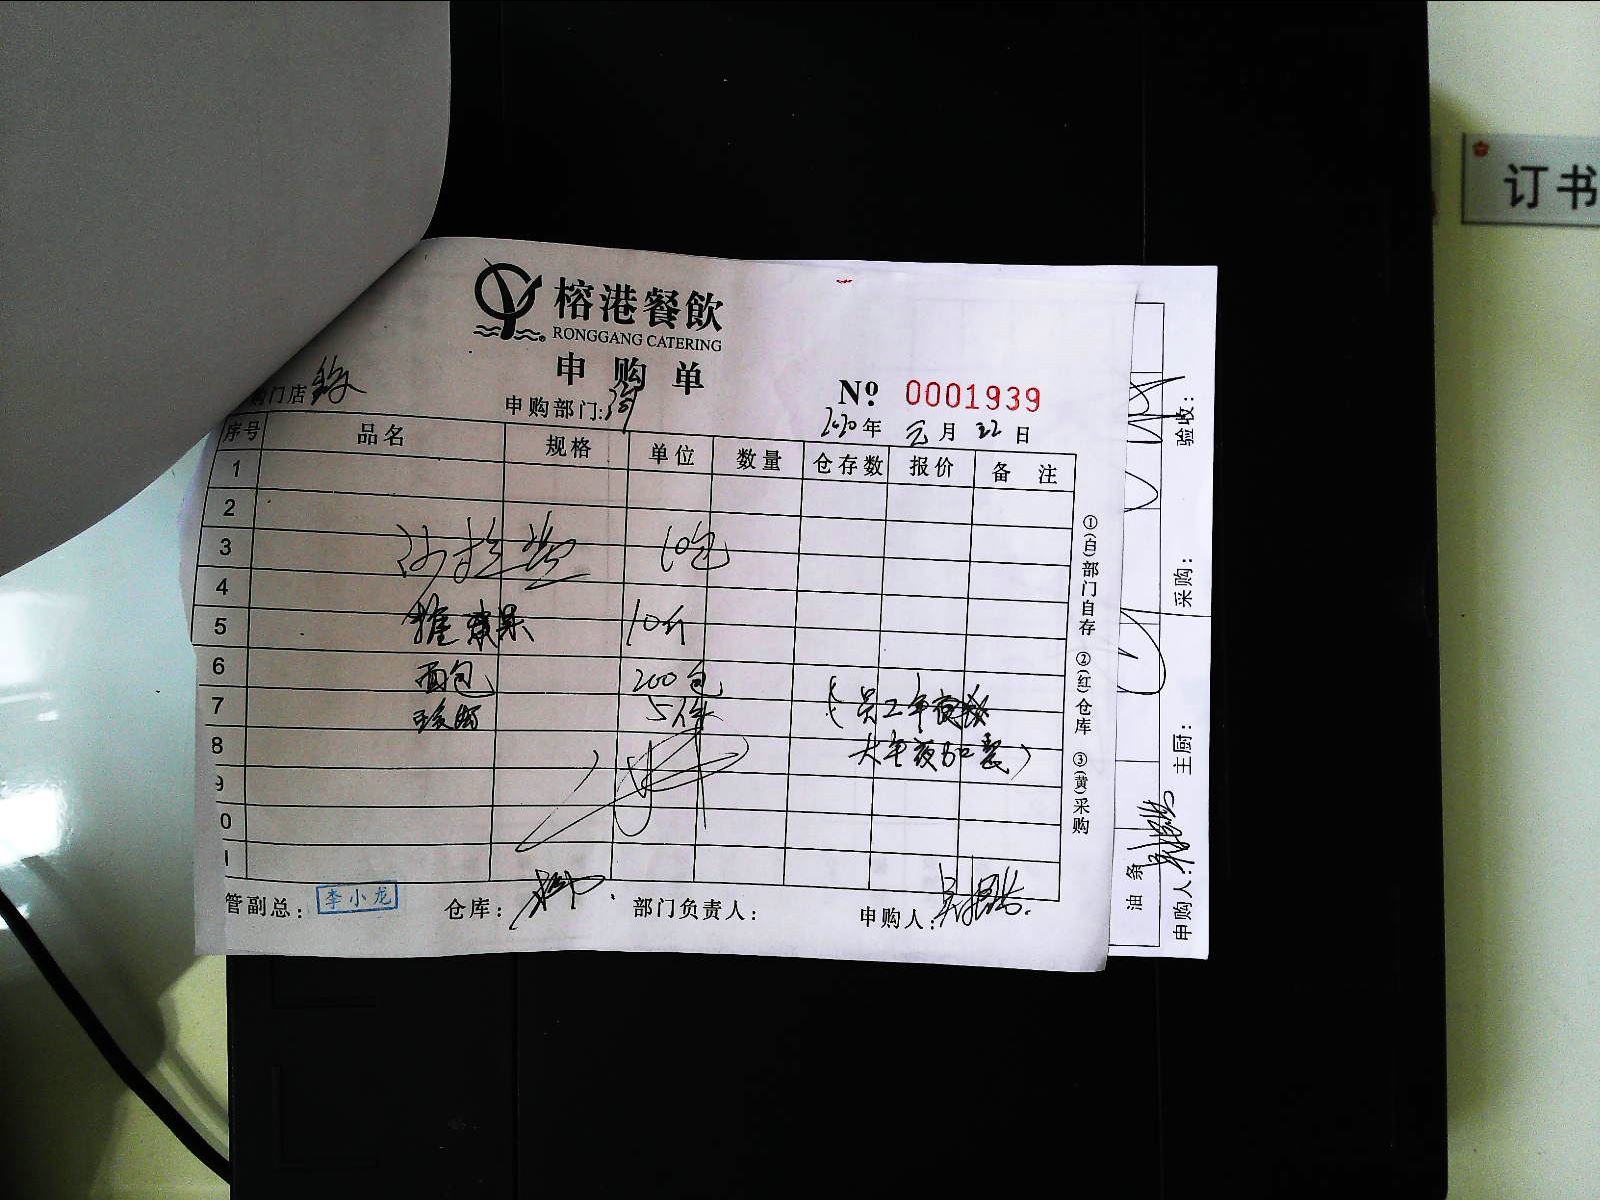 订书
榕港餐飲
RONGGANG CATERING
申购单
门店
申购部门:
Nº 0001939
2020年 元月 22日
序号 品名 规格 单位 数量 仓存数 报价 备注
1
2
3 沙拉酱 10包
4
5 10斤
6 面包 200包
7 5件 (员工年夜饭
8 大年夜加餐)
9
0
1
管副总: 李小龙 仓库: 部门负责人: 申购人:
①(白)部门自存 ②(红)仓库 ③(黄)采购
油条
验收:
采购:
主厨:
申购人: